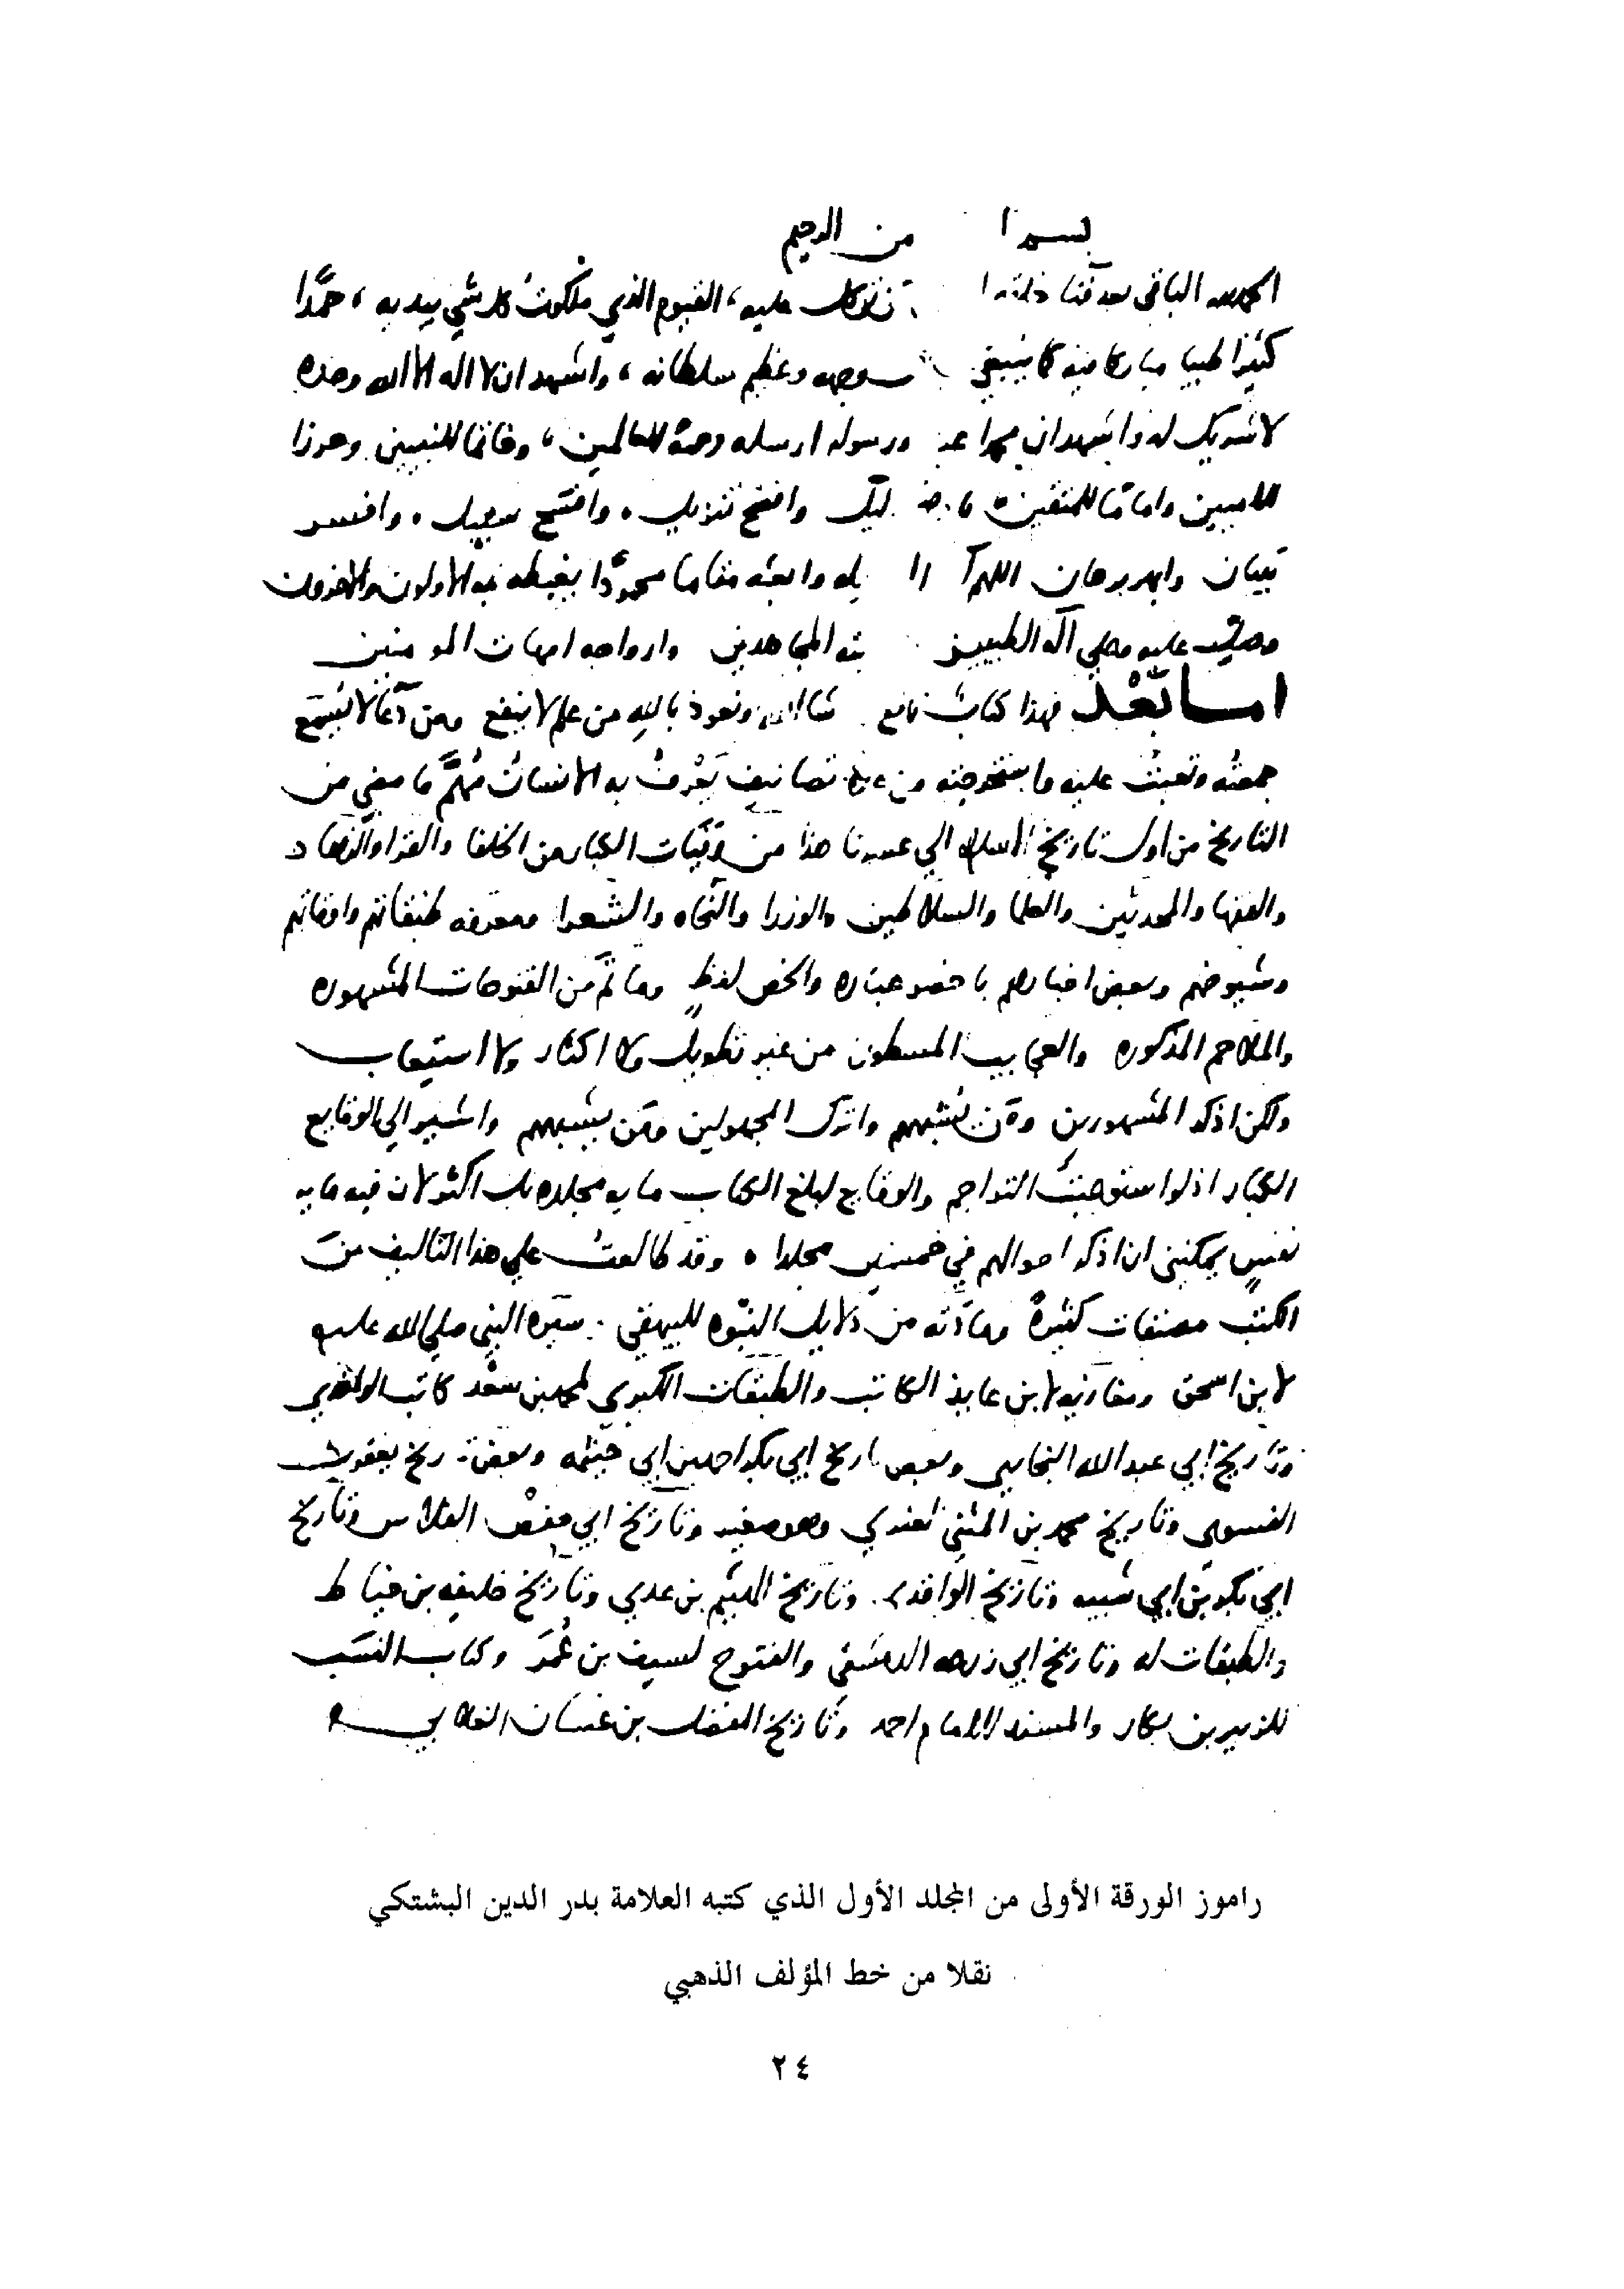 بسم ا من الرحيم
الحمد لله الباقي بعد فناء خلقه ا من توكل عليه، القيوم الذي ملكوت كل شي بيديه، حمدًا
كثيرًا طيبا مباركا فيه كما ينبغي وجهه وعظيم سلطانه، واشهد ان لا اله الا الله وحده
لا شريك له واشهد ان محمدا عبد ورسوله ارسله رحمة للعالمين، وخاتما للنبيين وحرزا
للاميين واماما للمتقين باوضح ليل وافصح تنزيل. وافسح سبيل. وافسر
تبيان وابهر برهان اللهم آ يله وابعثه مقاما محمودًا يغبطه به الاولون والاخرون
وصل عليه وعلي آله الطيبين بته المجاهدين وازواجه امهات المومنين
اما بَعْد فهذا كتاب نافع شا الله ونعوذ بالله من علم لا ينفع ومن دعا لا يُسمَع
جمعتُه وتعبتُ عليه واستخرجته من عدة تصانيف يَعْرفُ به الانسان مُهمَّ ما مضي من
التاريخ من اول تاريخ الاسلام الي عصرنا هذا من وفَيات الكبار من الخلفا والقرا والزهاد
والفقها والمحدثين والعلما والسلاطين والوزرا والنحاه والشعرا ومعرفه طبقاتهم واوقاتهم
وشيوخهم وبعض اخبارهم باخصر عباره والخص لفظٍ وما تَم من الفتوحات المشهوره
والملاحم المذكوره والعجايب المسطوره من غير تطويل ولا اكثار ولا استيعاب
ولكن اذكر المشهورين ومَن يُشبههم واترك المجهولين ومَن يشبههم واشير الي الوقايع
الكبار اذ لو استوعبتُ التراجم والوقايع لبلغ الكتاب مايه مجلده بل اكثر لان فيه مايه
نفسٍ يمكنني ان اذكر احوالهم في خمسين مجلدا ٥ وقد طالعتُ علي هذا التاليف من
الكتب مصنفات كثيرةً ومادّته من دلايل النبوه للبيهقي . سيره النبي صلي الله عليه
لابن اسحق ومغازيه لابن عايذ الكاتب والطبقات الكبري لمحمد بن سعْد كاتب الواقدي
وتاريخ ابي عبد الله البخاري وبعض اريخ ابي بكر احمد بن ابي خيثمه وبعض ريخ يعقوب
الفسوي وتاريخ محمد بن المثني لعنزي وهو صغير وتاريخ ابي حفص الفلاس وتاريخ
ابي بكر بن ابي شيبه وتاريخ الواقدي وتاريخ الهيثم بن عدي وتاريخ خليفه بن خياط
والطبقات له وتاريخ ابي زرعه الدمشقي والفتوح لسيف بن عُمَر وكتاب النسب
للزبير بن بكار والمسند للامام احمد وتاريخ المفضل بن غسان الغلابي
راموز الورقة الأولى من المجلد الأول الذي كتبه العلامة بدر الدين البشتكي
نقلا من خط المؤلف الذهبي
٢٤